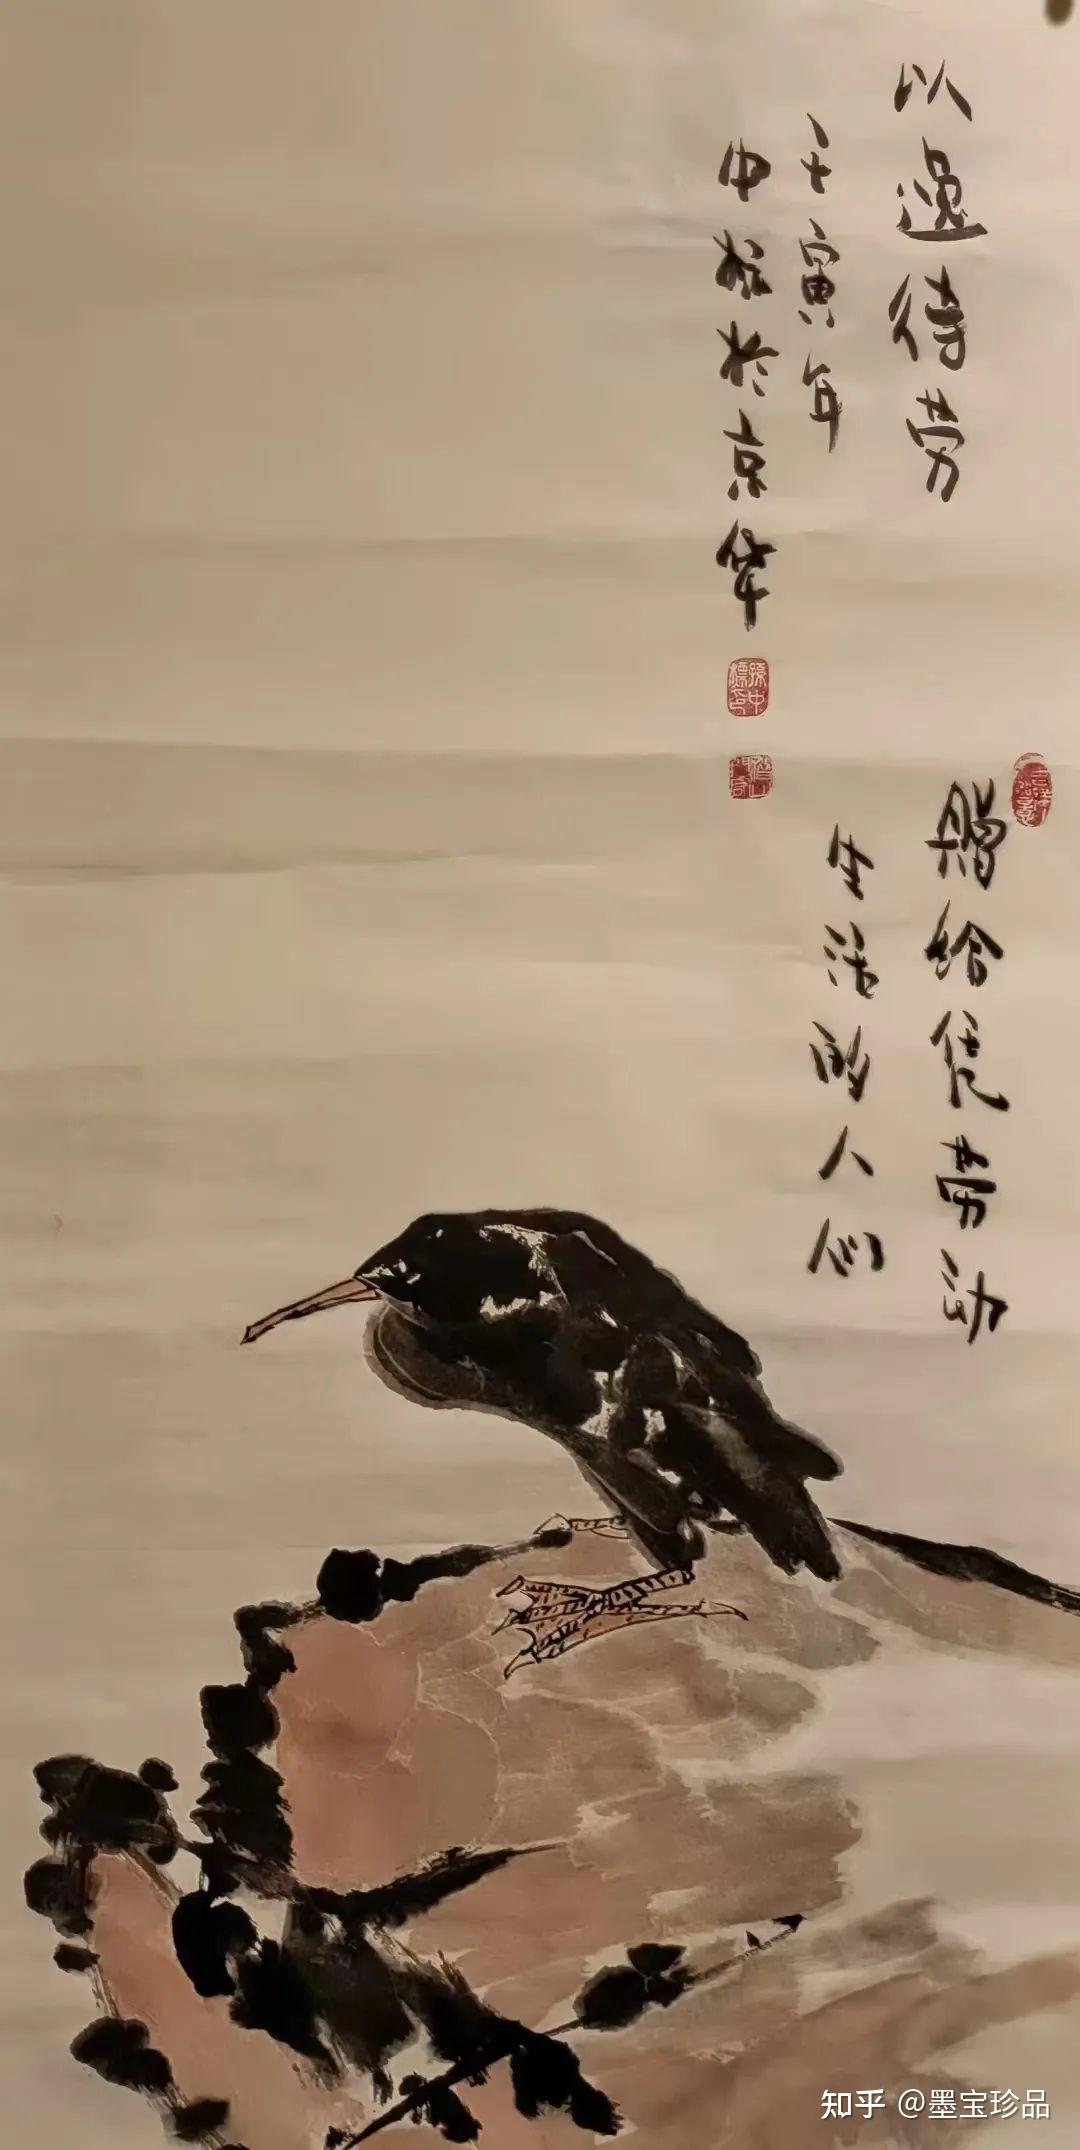 以逸待劳
壬寅年
中标於京华
孫中標印
赠给凭劳动
生活的人们
知乎 @墨宝珍品